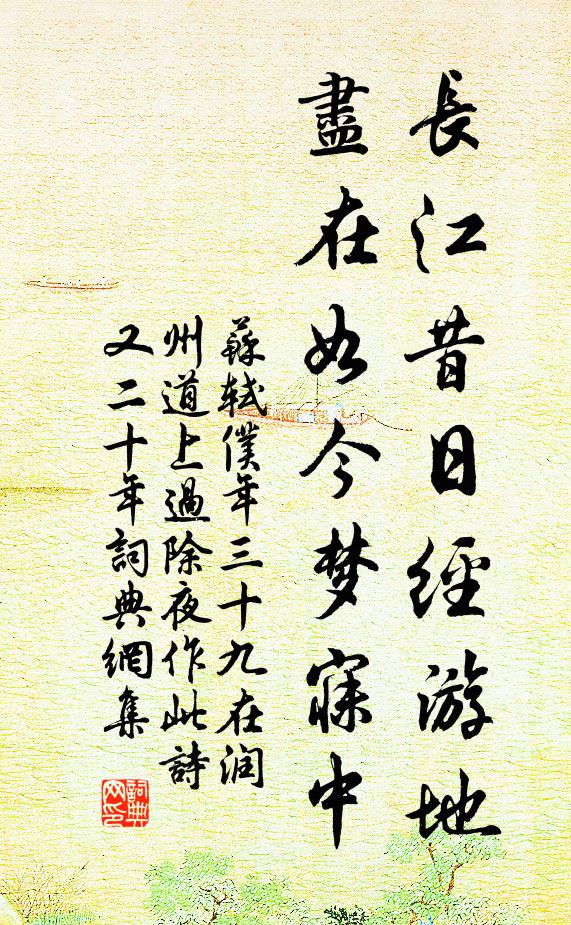 長江昔日經游地
盡在如今梦寐中
蘇軾僕年三十九在润
州道上過除夜作此詩
又二十年詞典網集
詞典
网印